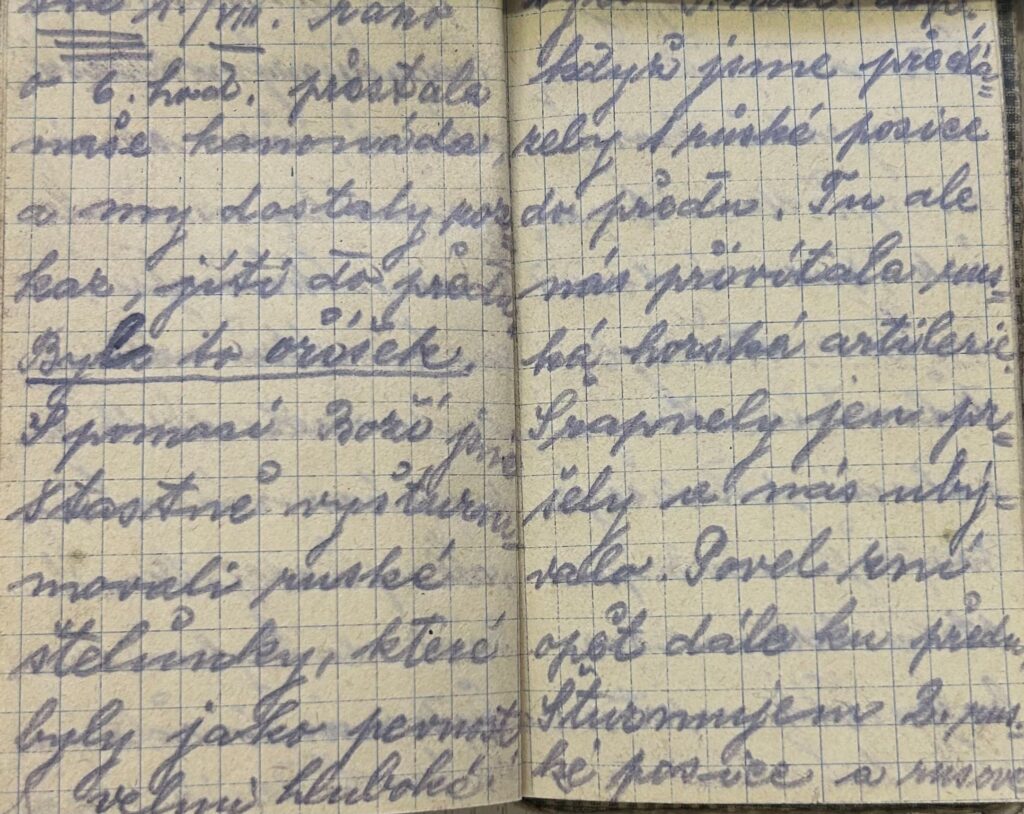 1./VIII. ráno
o 6. hod. přestala
naše kanonáda,
a my dostaly roz
kaz, jíti do předu
Byl to oříšek.
S pomocí Boží jsme
štastně vyšturm=
movali ruské
štelůnky, které
byly jako pevnost,
velmi hluboké
když jsme předá=
reby 1 růské posice
do předu. Tu ale
nás přivítala rus=
ká horská artilerie.
Šrapnely jen pr=
šely a nás ubý=
valo. Povel zní
opět dále ku předu,
Šturmujem 2. rus=
ké posice a rusové